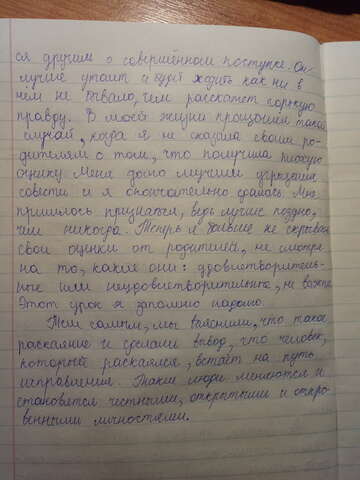 ся другим о совершённом поступке. Он
лучше утаит и будет ходить как ни в
чём не бывало, чем расскажет горькую
правду. В моей жизни произошёл такой
случай, когда я не сказала своим ро-
дителям о том, что получила плохую
оценку. Меня долго мучили угрызения
совести и я окончательно сдалась. Мне
пришлось признаться, ведь лучше поздно,
чем никогда. Теперь я больше не скрываю
свои оценки от родителей, не смотря
на то, какие они: удовлетворитель-
ные или неудовлетворительные, не важно.
Этот урок я запомню надолго.
Тем самым, мы выяснили, что такое
раскаяние и сделали вывод, что человек,
который раскаялся, встаёт на путь
исправления. Такие люди меняются и
становятся честными, открытыми и откро-
венными личностями.